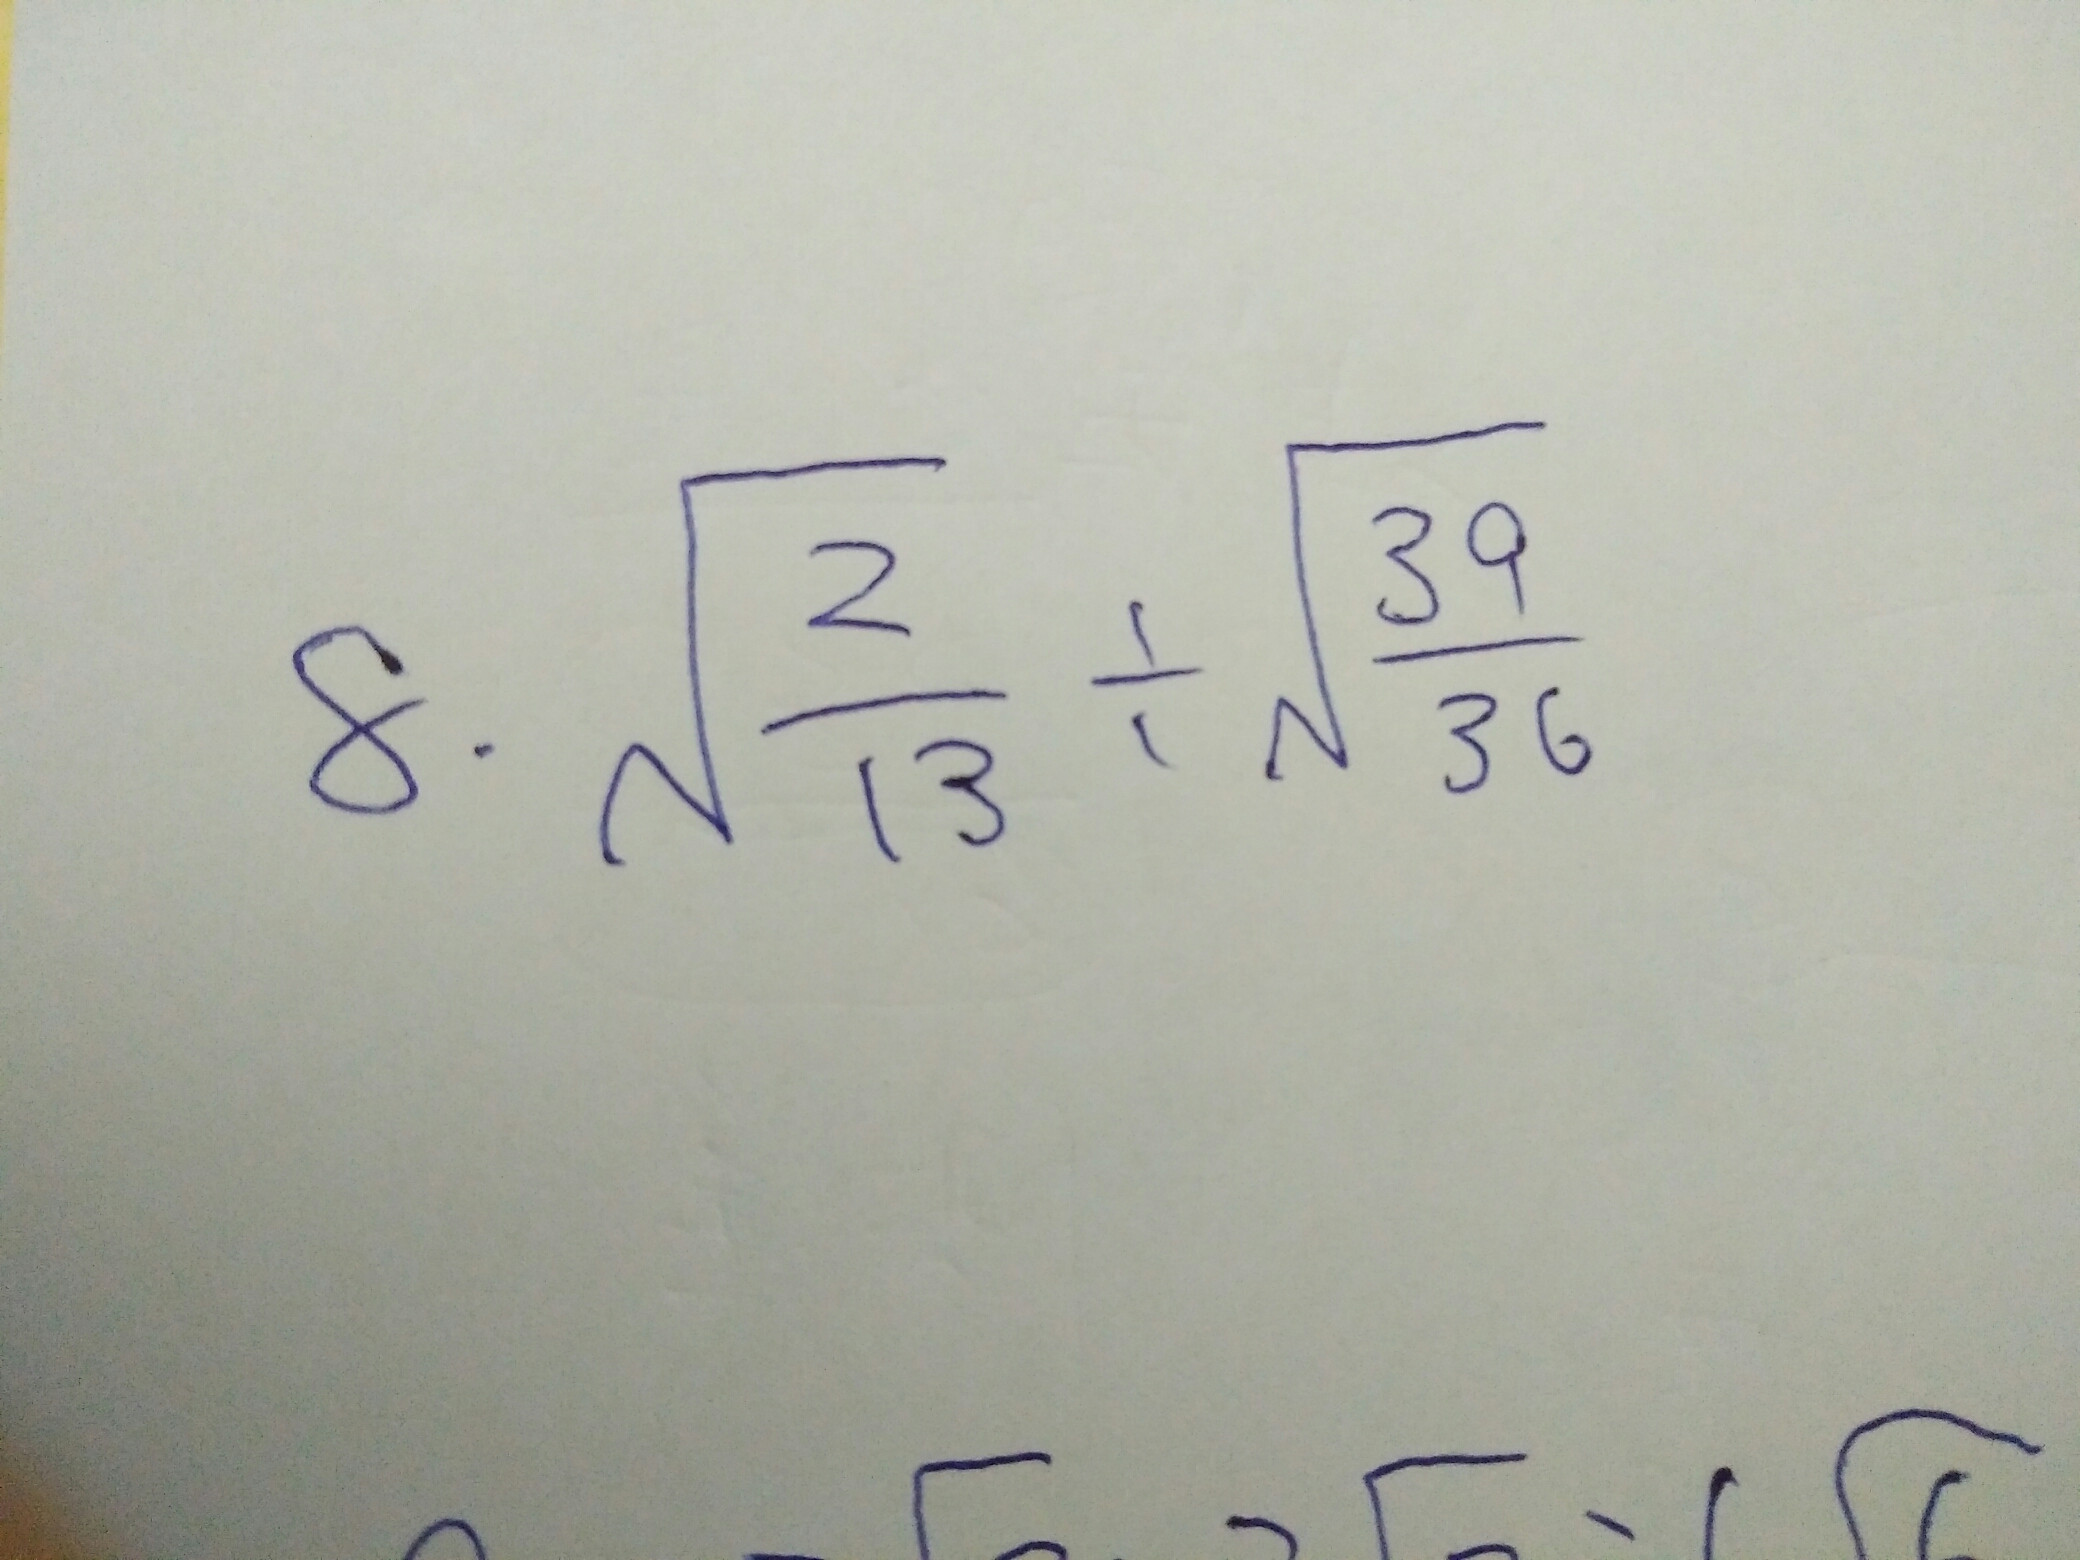 8. √(2/13) ÷ √(39/36)